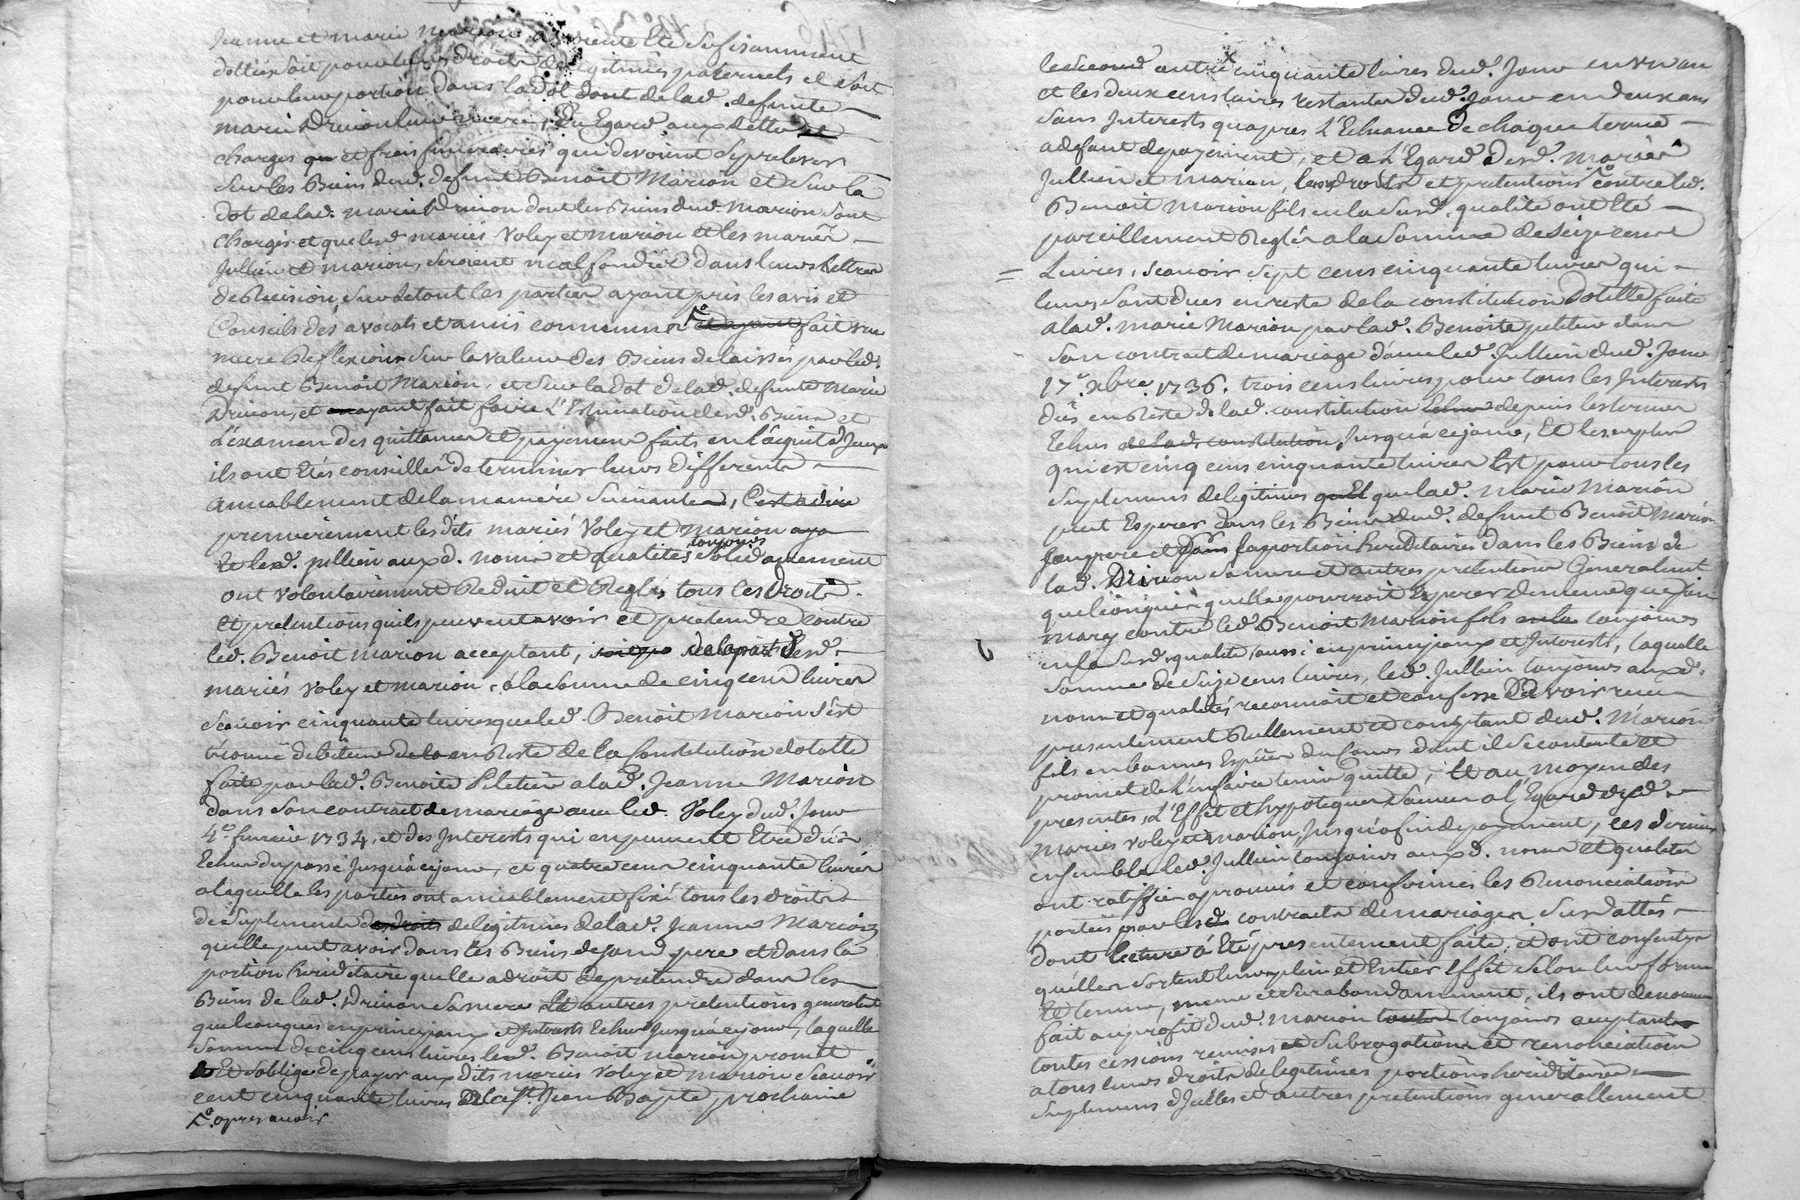 Jeanne et marie Marion avoient Eté Sufisamment
dottées soit pour leurs droits de legitimes paternels et soit
pour leur portion dans la dot dont de lad. defunte
marie Drivon leur mere, Eu Egard aux dettes et
charges que et frais funeraires qui devoient Se prelever
Sur les Biens dud. defunt Benoit Marion et Sur la
dot de lad. marie Drivon dont les Biens dud. Marion Sont
chargés et que lesd. mariés Voley et Marion et les mariés
Jullien et marion, Seroient mal fondés dans leurs Lettres
de Recision, Sur de tout les parties ayant pris les avis et
Conseils des avocats et amis communs et ayant fait une
mure Reflexion Sur la valeur des Biens delaissés par led.
defunt Benoit Marion, et Sur la dot de lad. defunte Marie
Drivon, et ayant fait faire L'Estimation desd. Biens et
L'examen des quittances et payemens faits en l'acquit d'Jceux
ils ont Etés conseillés de terminer leurs differents
amiablement de la maniere Suivante, C'est a dire
premierement les dits mariés Voley et Marion
et led. jullien aux d. noms et qualités toujours Solidairement
ont volontairement Reduit et Reglés tous les droits
et pretentions quils peuvent avoir et pretendre contre
led. Benoit Marion acceptant, de la part desd.
mariés Voley et Marion, a la Somme de cinq cens livres
Scavoir cinquante livres que led. Benoit Marion S'est
trouvé debiteur de la en Reste de la Constitution dotalle
faite par lad. Benoite Peletier a lad. Jeanne Marion
dans Son contrat de mariage avec led. Voley du d. Jour
4e fevrier 1734, et des Interests qui en peuvent Etre dûs
Echus du passé Jusqu'a ce jour, et quatre cens cinquante livres
a laquelle les parties ont amiablement fixé tous les droits
de Suplements des droits de legitimes de lad. Jeanne Marion
quelle peut avoir dans les Biens de Son pere et dans la
portion hereditaire quelle a droit de pretendre dans les
Biens de lad. Drivon Sa mere, Et autres pretentions generalement
quelconques en principaux et Interests Echus Jusqu'a ce jour, laquelle
Somme de cinq cens livres led. Benoit Marion promet
Et S'oblige de payer aux dits mariés Voley et Marion Scavoir
cent cinquante livres a la St. Jean Baptiste prochaine
apres avoir
le Second autre cinquante livres du d. Jour en un an
et les deux cens livres restantes du d. Jour en deux ans
Sans Interests qu'apres L'Echeance de chaque terme
a defaut de payement, et a L'Egard desd. Mariés
Jullien et Marion, leurs droits et pretentions contre led.
Benoit Marion fils en la Susd. qualité ont Eté
pareillement Reglés a la Somme de Seize cens
Livres, Scavoir Sept cens cinquante livres qui
leurs Sont dues en reste de la constitution dotalle faite
a lad. Marie Marion par lad. Benoite peletier dans
Son contrat de mariage d'avec led. Jullien du d. Jour
17e Xbre 1736. trois cens livres pour tous les Interests
dûs en Reste de lad. constitution Echus depuis les termes
Echus de lad. constitution Jusqu'a ce jour, Et le Surplus
qui est cinq cens cinquante livres Est pour tous les
Suplemens de legitimes que lad. Marie Marion
peut Esperer dans les Biens dud. defunt Benoit Marion
Son pere et dans Sa portion hereditaire dans les Biens de
lad. Drivon Sa mere et autres pretentions Generalement
quelconques quelle pourroit Esperer de meme que Son
mary contre led. Benoit Marion fils toujours
en la Susd. qualité, aussi en principaux et Interests, laquelle
Somme de Seize cens livres, led. Jullien toujours aux d.
noms et qualités reconnoit et confesse D'avoir receu
presentement Rellement et comptant dud. Marion
fils en bonnes Espèces du Cours dont il Se contente et
promet de L'en faire tenir quitte, Et au moyen des
presentes, L'Effet et hypoteques Sauves a l'Egard desd.
mariés Voley et Marion, Jusqu'a fin de payement, ces derniers
ensemble led. Jullien toujours aux d. noms et qualités
ont ratiffié aprouvés et confirmés les Renonciations
portées par lesd. contracts de mariages Sus dattés
dont lecture a Eté presentement faite, et ont consenty
qu'elles Sortent leur plein et Entier Effet Selon leur forme
Et teneur, meme et Surabondamment, ils ont de nouveau
fait au profit dud. Marion toujours acceptant
toutes cessions remises et Subrogations et renonciation
a tous leurs droits de legitimes portions hereditaires
Suplemens d'Jcelles et autres pretentions generallement